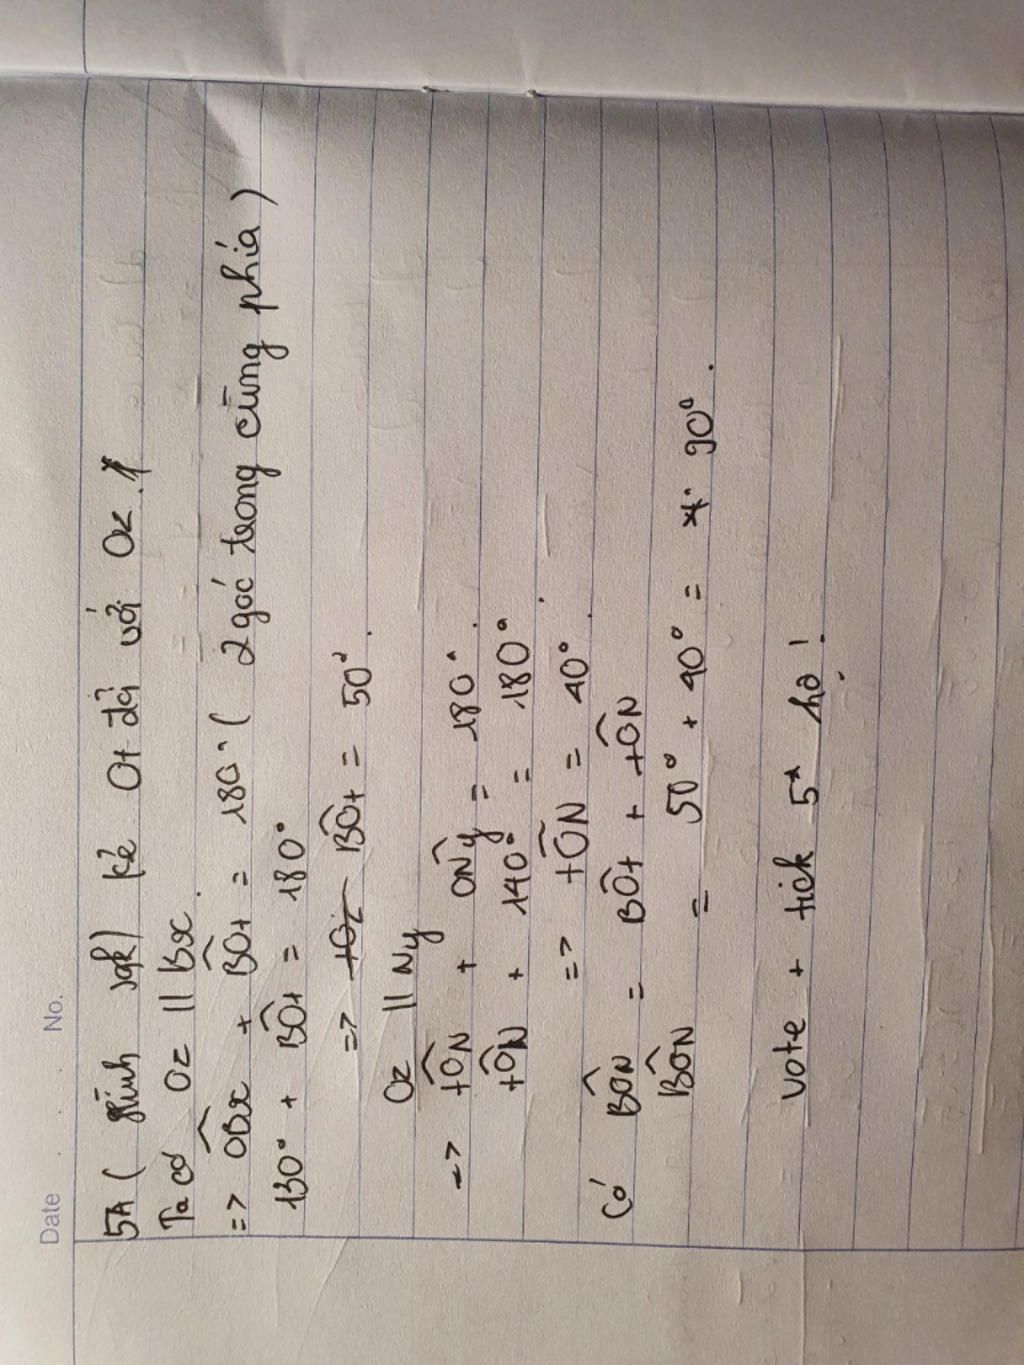 Date No.
5A ( hình sgk) kẻ Ot đối với Oz.
Ta có Oz // Bx.
=> OBx + BOt = 180° ( 2 góc trong cùng phía )
130° + BOt = 180°
=> BOt = 50°.
Oz // Ny
=> tON + ONy = 180°.
tON + 140° = 180°.
=> tON = 40°.
Có BON = BOt + tON
BON = 50° + 40° = 90°.
vote + tick 5* hộ !